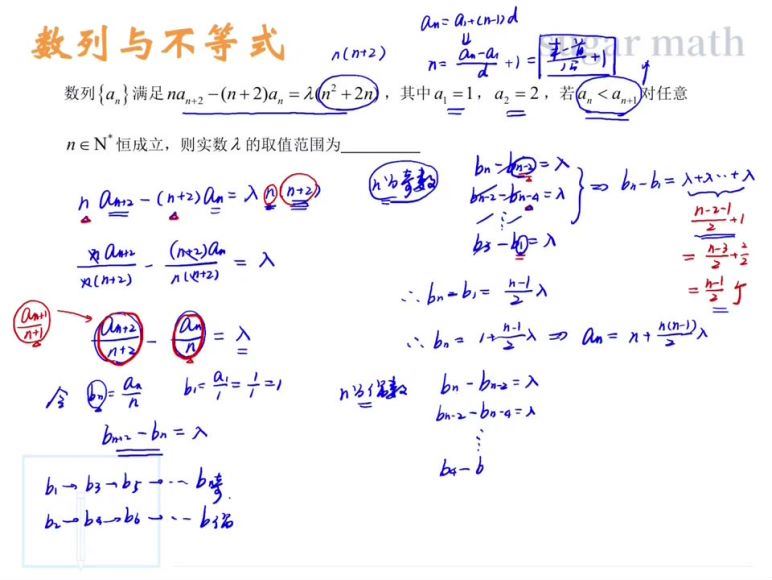 数列与不等式
sugar math
aₙ = a₁+(n-1)d
⇓
n = (aₙ-a₁)/d + 1 = (末-首)/公差 + 1
n(n+2)
数列{aₙ}满足naₙ₊₂-(n+2)aₙ=λ(n²+2n), 其中a₁=1, a₂=2, 若aₙ<aₙ₊₁对任意
n∈N*恒成立, 则实数λ的取值范围为________
n aₙ₊₂ - (n+2)aₙ = λ n(n+2)
n aₙ₊₂/n(n+2) - (n+2)aₙ/n(n+2) = λ
aₙ₊₁/n+1 → aₙ₊₂/n+2 - aₙ/n = λ
令 bₙ = aₙ/n b₁ = a₁/1 = 1/1 = 1
bₙ₊₂ - bₙ = λ
b₁→b₃→b₅→…b奇
b₂→b₄→b₆→…b偶
n为奇数
bₙ - bₙ₋₂ = λ
bₙ₋₂ - bₙ₋₄ = λ
⋮
b₃ - b₁ = λ
⇒ bₙ - b₁ = λ+λ…+λ
(n-2-1)/2 + 1
= (n-3)/2 + 2/2
= (n-1)/2 个
∴ bₙ - b₁ = (n-1)/2 λ
∴ bₙ = 1 + (n-1)/2 λ ⇒ aₙ = n + n(n-1)/2 λ
n为偶数
bₙ - bₙ₋₂ = λ
bₙ₋₂ - bₙ₋₄ = λ
⋮
b₄ - b